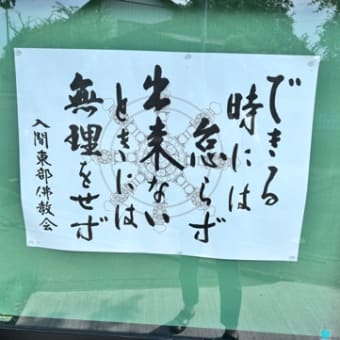 できる
時には
怠らず
出来ない
ときには
無理をせず
入間東部佛教会